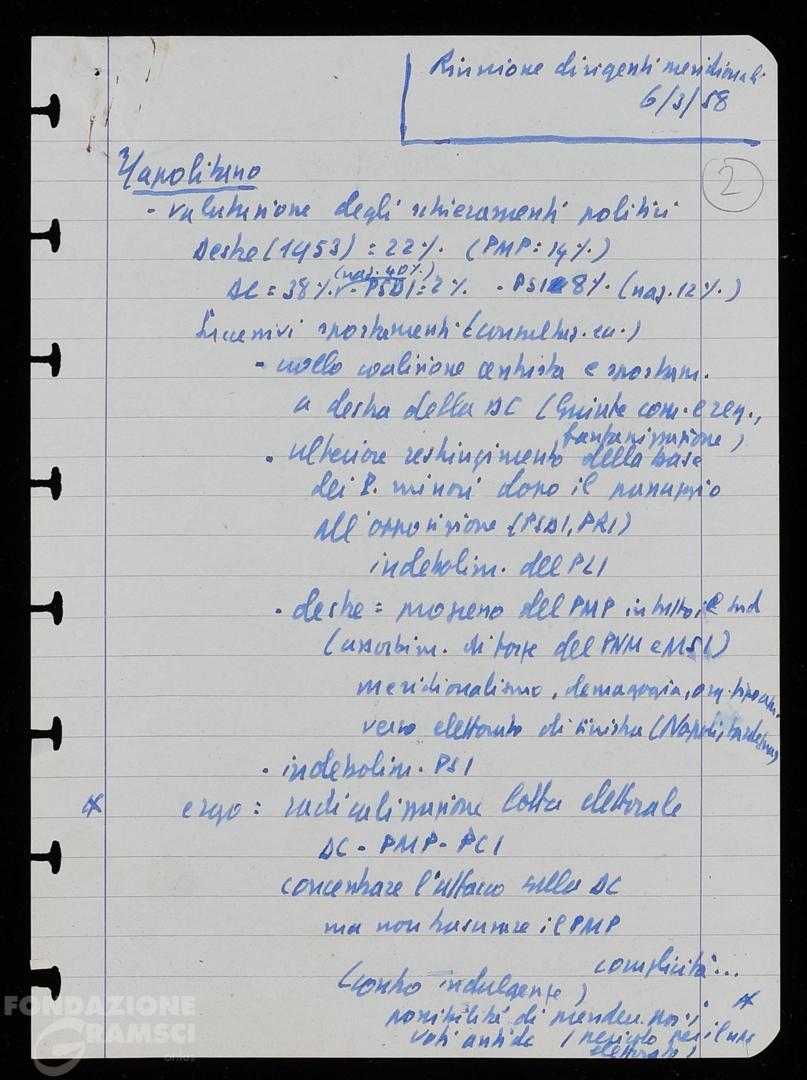 Riunione dirigenti meridionali
6/3/58
2
Napolitano
- valutazione degli schieramenti politici
Destre (1953) = 22% (PMP = 14%)
DC = 38% (naz. 40%) - PSDI = 2% - PSI 8% (naz. 12%)
Successivi spostamenti (
- crollo coalizione centrista e spostam.
a destra della DC (Giunte com. e reg.,
fanfanizzazione)
- ulteriore restringimento della base
dei P. minori dopo il passaggio
all'opposizione (PSDI, PRI)
indebolim. del PLI
- destre = del PMP in tutto il sud
(assorbim. di forze del PNM e MSI)
meridionalismo, demagogia, org. tipo com.
verso elettorato di sinistra (Napoli,
- indebolim. PSI
* ergo = radicalizzazione lotta elettorale
DC - PMP - PCI
concentrare l'attacco sulla DC
ma non trascurare il PMP
complicità...
(contro indulgenze)
possibilità di prendere noi i *
voti anti dc (pericolo per il ns
elettorato)
FONDAZIONE
GRAMSCI
onlus